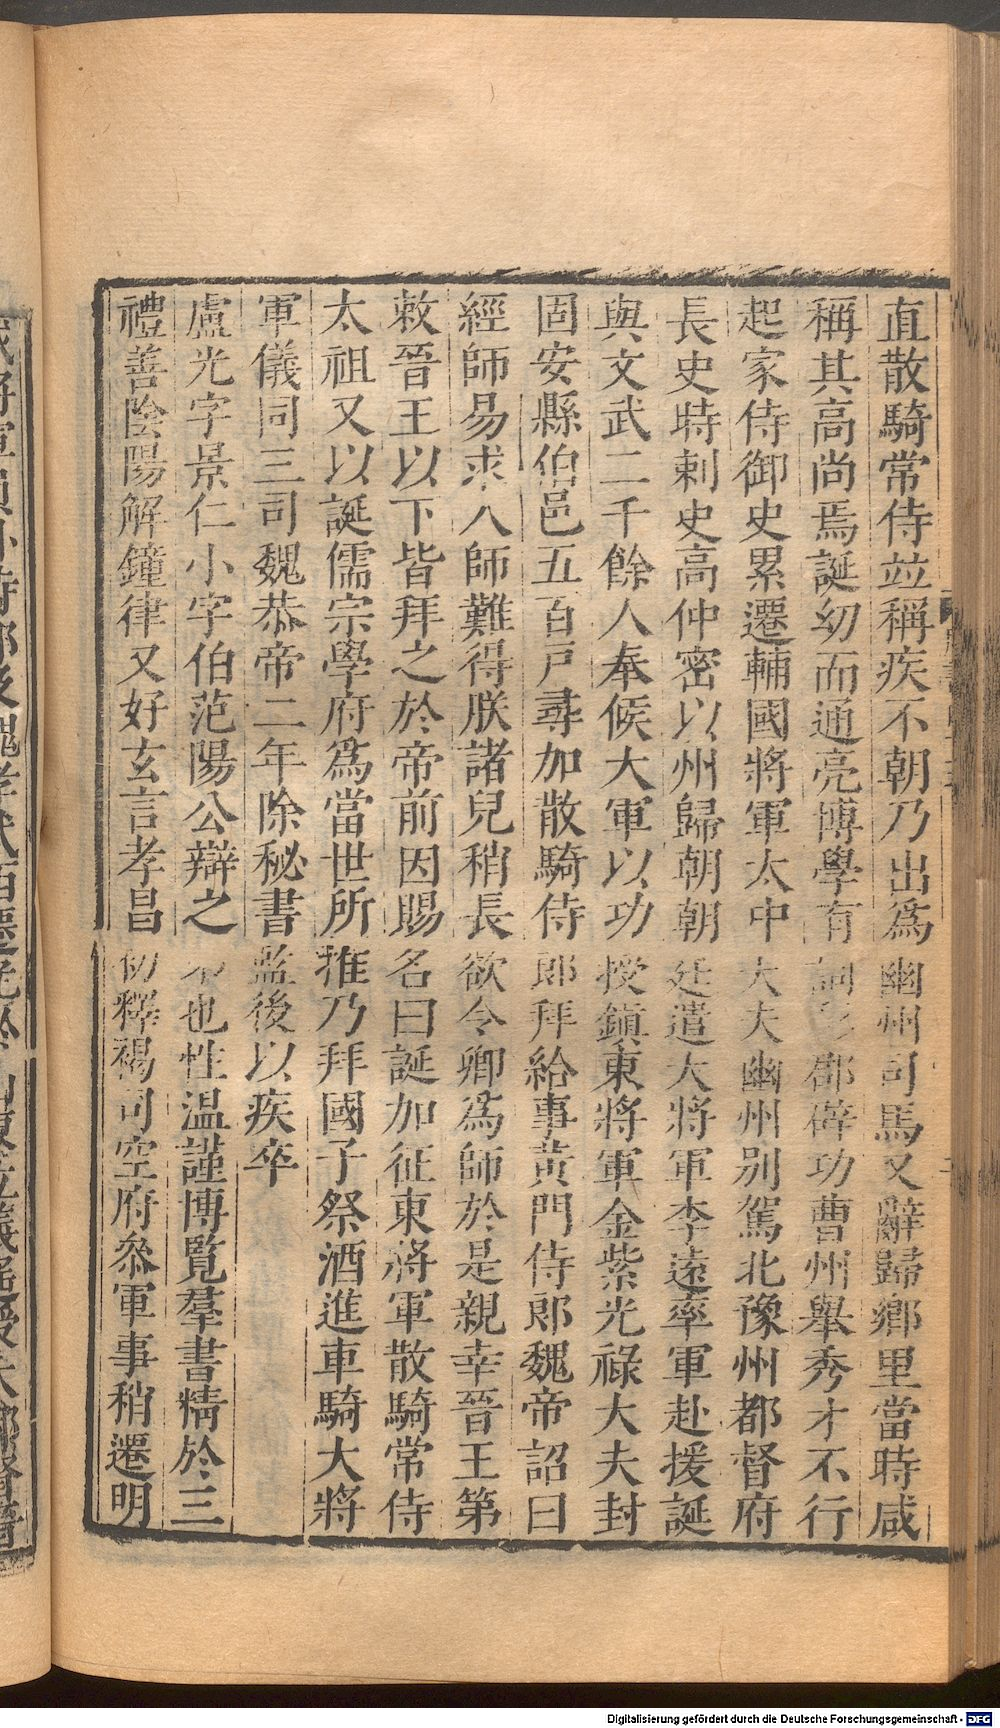 直散騎常侍並稱疾不朝乃出為幽州司馬又辭歸鄉里當時咸
稱其高尚焉誕幼而通亮博學有詞彩郡辟功曹州舉秀才不行
起家侍御史累遷輔國將軍太中大夫幽州别駕北豫州都督府
長史時刺史高仲密以州歸朝朝廷遣大將軍李遠率軍赴援誕
與文武二千餘人奉候大軍以功授鎮東將軍金紫光祿大夫封
固安縣伯邑五百戶尋加散騎侍郎拜給事黃門侍郎魏帝詔曰
經師易求人師難得朕諸兒稍長欲令卿為師於是親幸晉王第
敕晉王以下皆拜之於帝前因賜名曰誕加征東將軍散騎常侍
太祖又以誕儒宗學府為當世所推乃拜國子祭酒進車騎大將
軍儀同三司魏恭帝二年除秘書監後以疾卒
盧光字景仁小字伯范陽公辯之弟也性溫謹博覽羣書精於三
禮善陰陽解鐘律又好玄言孝昌初釋褐司空府叅軍事稍遷明
Digitalisierung gefördert durch die Deutsche Forschungsgemeinschaft - DFG